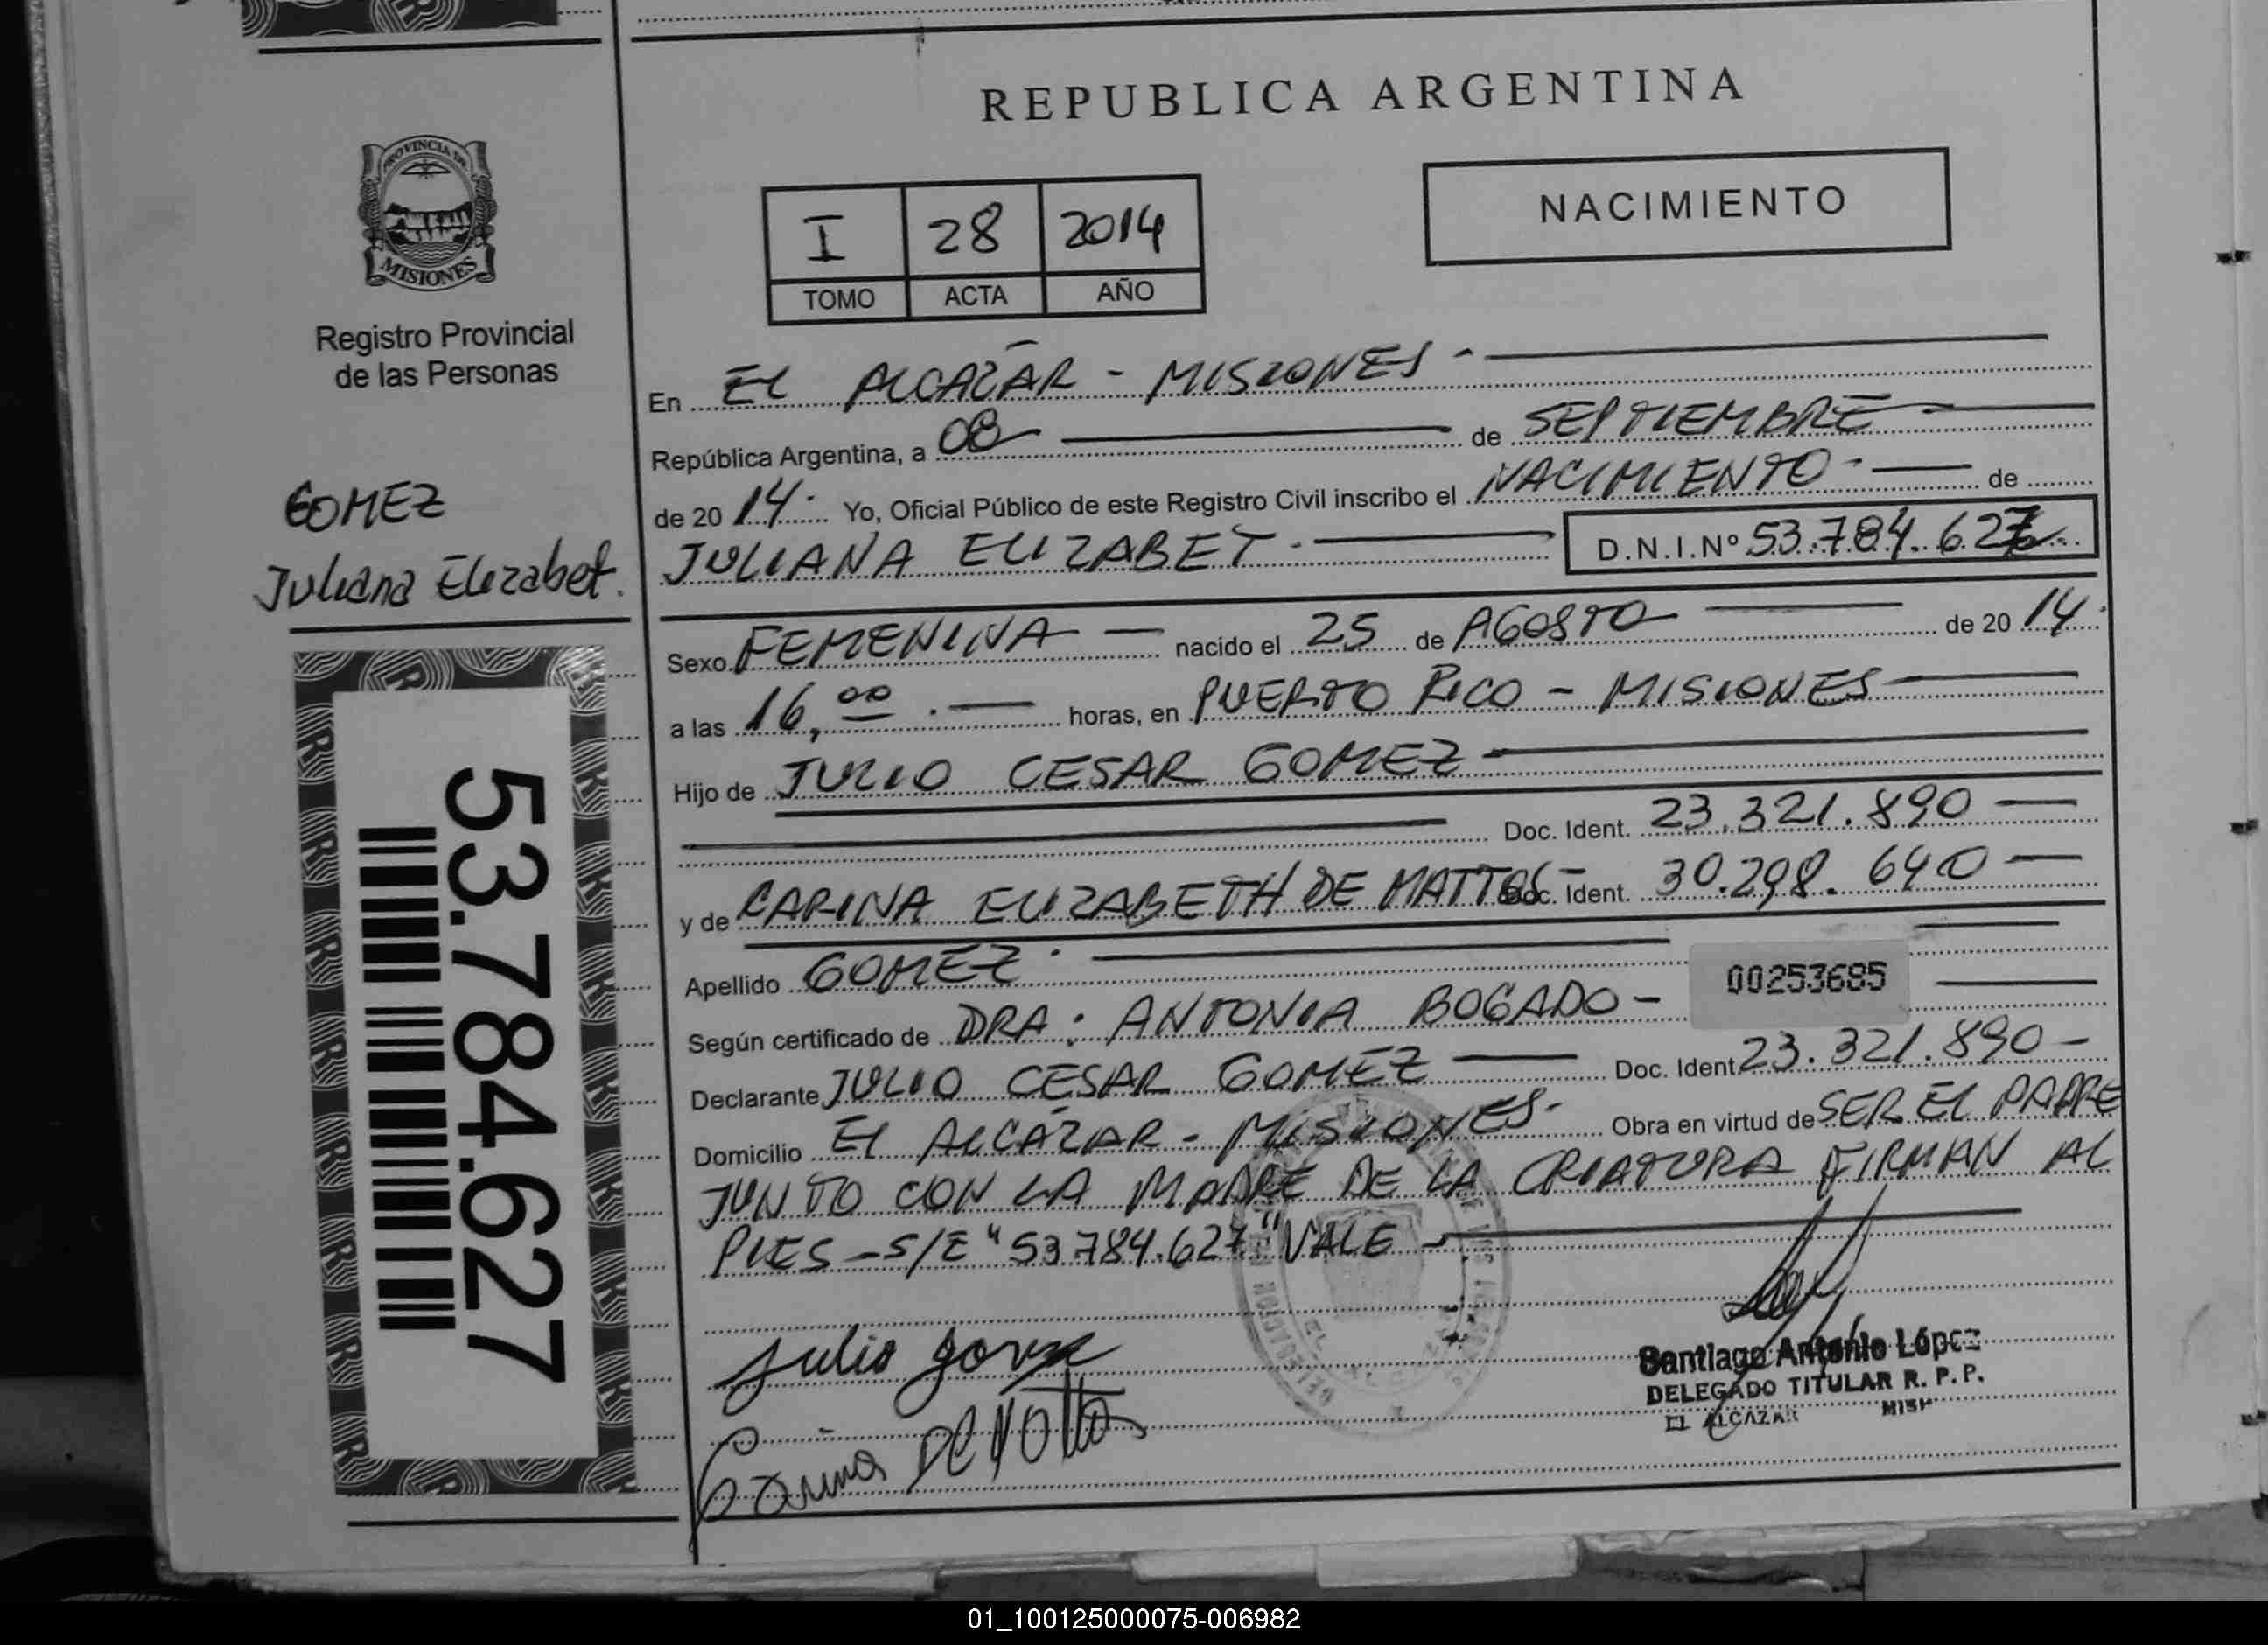 REPUBLICA ARGENTINA
PROVINCIA DE
MISIONES
Registro Provincial
de las Personas
GOMEZ
Juliana Elizabet.
53.784.627
I 28 2014
TOMO ACTA AÑO
NACIMIENTO
En EL ALCAZAR - MISIONES -
República Argentina, a 08 de SEPTIEMBRE
de 20 14. Yo, Oficial Público de este Registro Civil inscribo el NACIMIENTO - de
JULIANA ELIZABET - D.N.I.Nº 53.784.627
Sexo FEMENINA nacido el 25 de AGOSTO de 20 14.
a las 16,00 . horas, en PUERTO RICO - MISIONES
Hijo de JULIO CESAR GOMEZ
Doc. Ident. 23.321.890
y de CARINA ELIZABETH DE MATTOS Doc. Ident. 30.298.640
Apellido GOMEZ.
00253685
Según certificado de DRA. ANTONIA BOGADO -
Declarante JULIO CESAR GOMEZ Doc. Ident 23.321.890 -
Domicilio EL ALCAZAR - MISIONES - Obra en virtud de SER EL PADRE
JUNTO CON LA MADRE DE LA CRIATURA FIRMAN AL
PIES - S/E "53.784.627" VALE -
Julio Gomez
Carina De Mattos
Santiago Antonio López
DELEGADO TITULAR R. P. P.
EL ALCAZAR
01_100125000075-006982